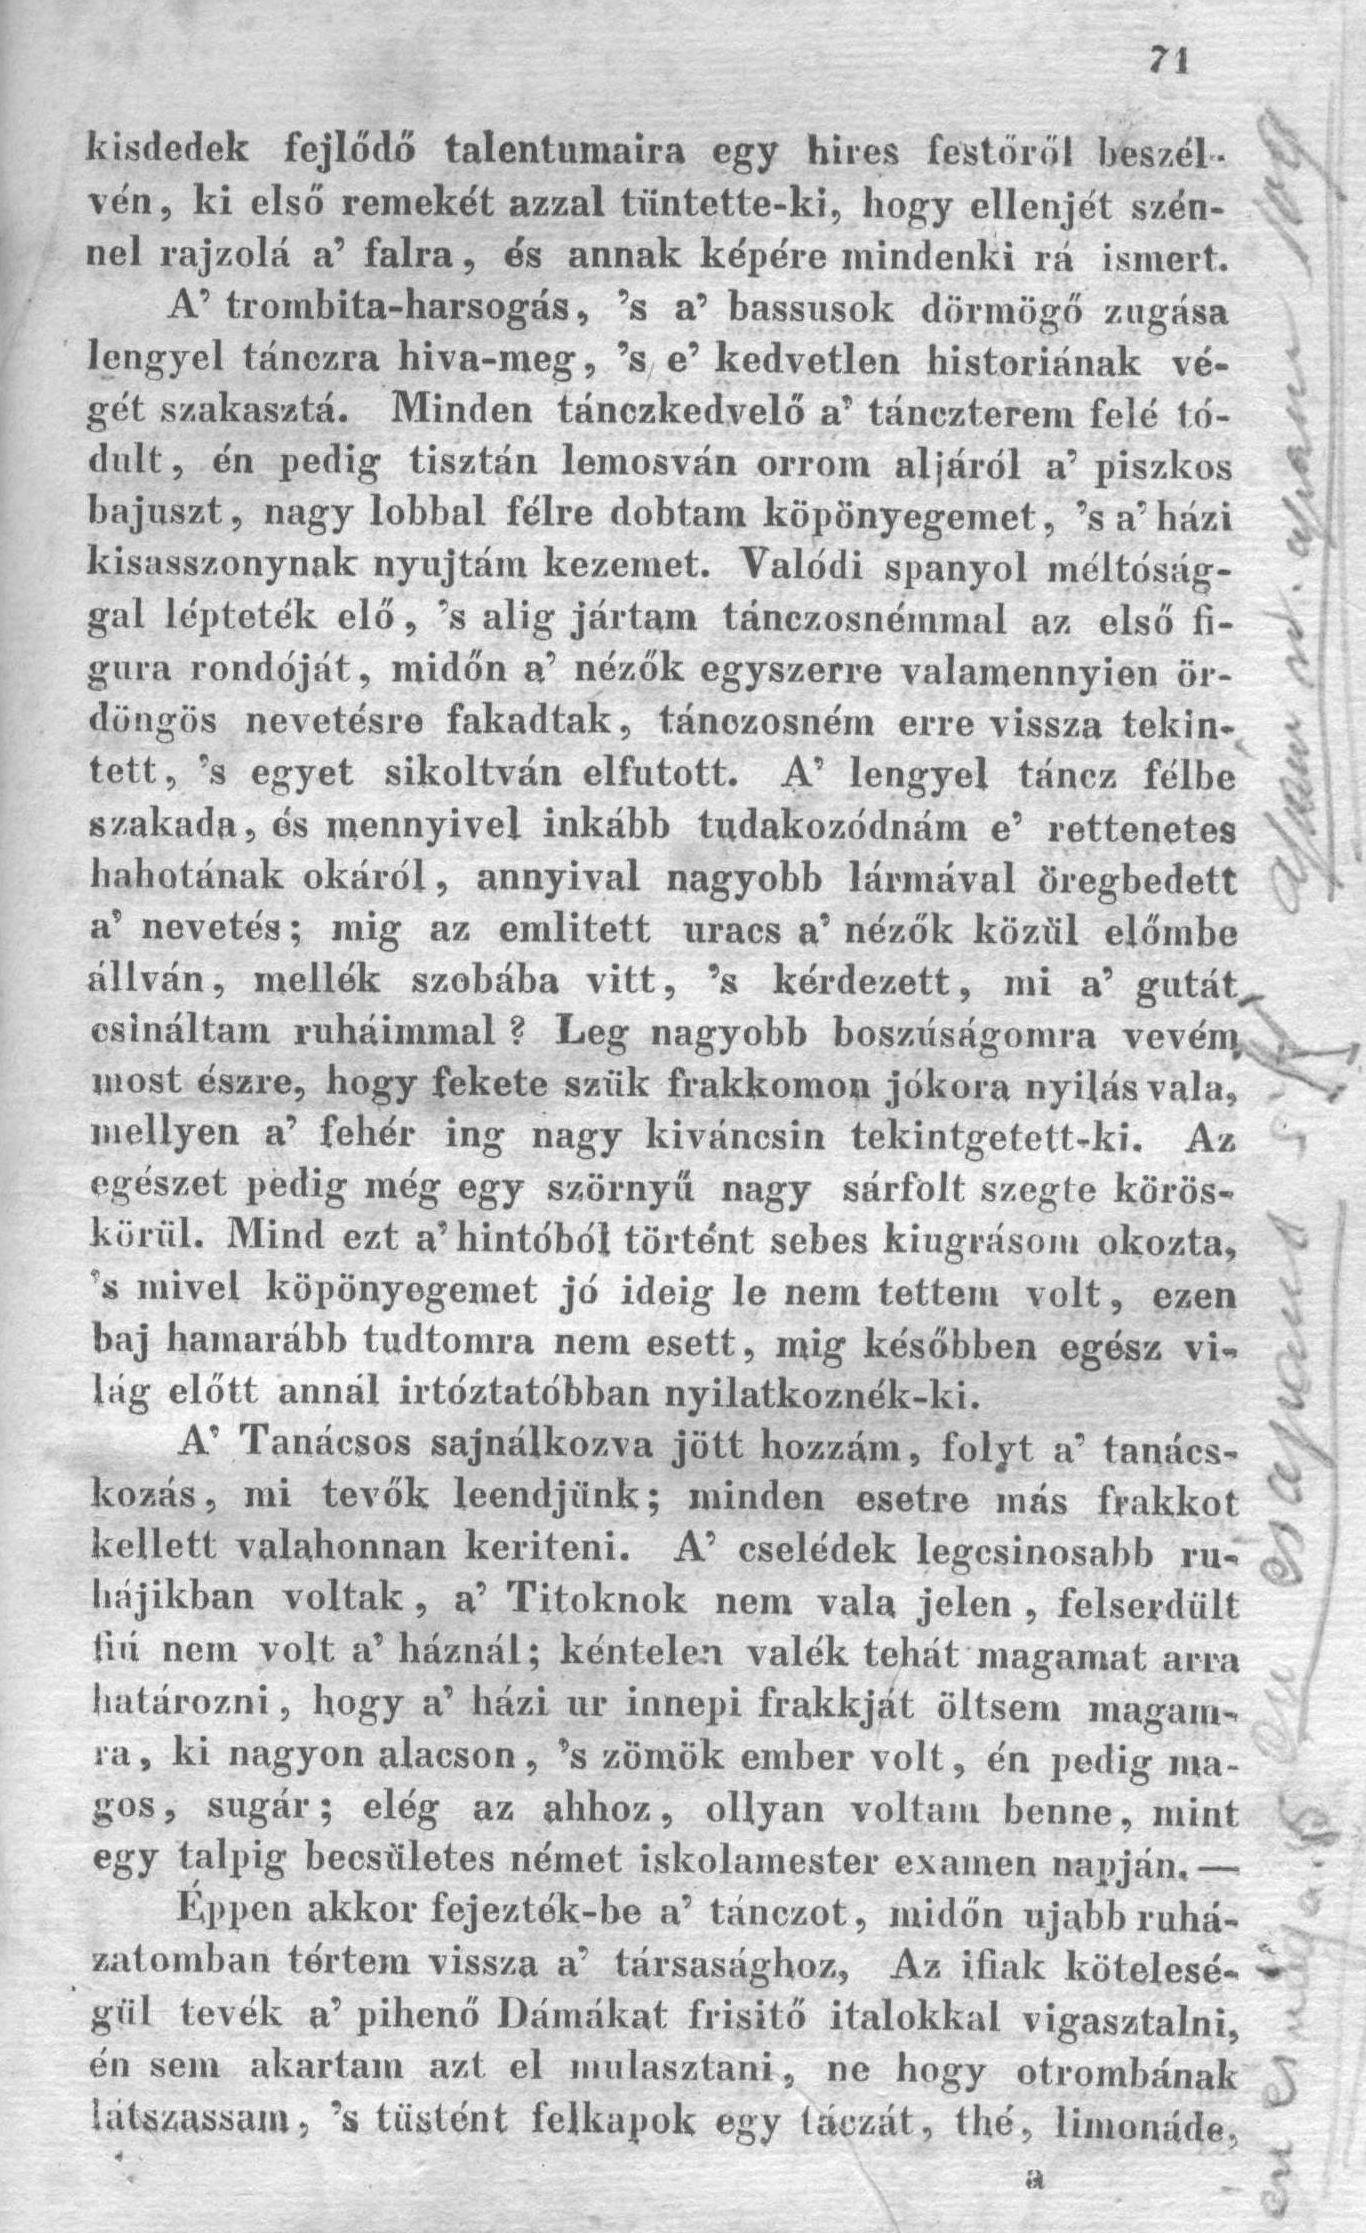 71
kisdedek fejlődő talentumaira egy hires festőről beszél-
vén, ki első remekét azzal tüntette-ki, hogy ellenjét szén-
nel rajzolá a’ falra, és annak képére mindenki rá ismert.
A’ trombita-harsogás, ’s a’ bassusok dörmögő zugása
lengyel tánczra hiva-meg, ’s e’ kedvetlen historiának vé-
gét szakasztá. Minden tánczkedvelő a’ tánczterem felé tó-
dult, én pedig tisztán lemosván orrom aljáról a’ piszkos
bajuszt, nagy lobbal félre dobtam köpönyegemet, ’s a’ házi
kisasszonynak nyujtám kezemet. Valódi spanyol méltóság-
gal lépteték elő, ’s alig jártam tánczosnémmal az első fi-
gura rondóját, midőn a’ nézők egyszerre valamennyien ör-
döngös nevetésre fakadtak, tánczosném erre vissza tekin-
tett, ’s egyet sikoltván elfutott. A’ lengyel táncz félbe
szakada, és mennyivel inkább tudakozódnám e’ rettenetes
hahotának okáról, annyival nagyobb lármával öregbedett
a’ nevetés; mig az emlitett uracs a’ nézők közül előmbe
állván, mellék szobába vitt, ’s kérdezett, mi a’ gutát
csináltam ruháimmal? Leg nagyobb boszúságomra vevém
most észre, hogy fekete szük frakkomon jókora nyilás vala,
mellyen a’ fehér ing nagy kiváncsin tekintgetett-ki. Az
egészet pedig még egy szörnyű nagy sárfolt szegte körös-
körül. Mind ezt a’ hintóból történt sebes kiugrásom okozta,
’s mivel köpönyegemet jó ideig le nem tettem volt, ezen
baj hamarább tudtomra nem esett, mig későbben egész vi-
lág előtt annál irtóztatóbban nyilatkoznék-ki.
A’ Tanácsos sajnálkozva jött hozzám, folyt a’ tanács-
kozás, mi tevők leendjünk; minden esetre más frakkot
kellett valahonnan keriteni. A’ cselédek legcsinosabb ru-
hájikban voltak, a’ Titoknok nem vala jelen, felserdült
fiú nem volt a’ háznál; kéntelen valék tehát magamat arra
határozni, hogy a’ házi ur innepi frakkját öltsem magam-
ra, ki nagyon alacson, ’s zömök ember volt, én pedig ma-
gos, sugár; elég az ahhoz, ollyan voltam benne, mint
egy talpig becsületes német iskolamester examen napján. —
Éppen akkor fejezték-be a’ tánczot, midőn ujabb ruhá-
zatomban tértem vissza a’ társasághoz, Az ifiak kötelesé-
gül tevék a’ pihenő Dámákat frisitő italokkal vigasztalni,
én sem akartam azt el mulasztani, ne hogy otrombának
látszassam, ’s tüstént felkapok egy táczát, thé, limonáde,
a